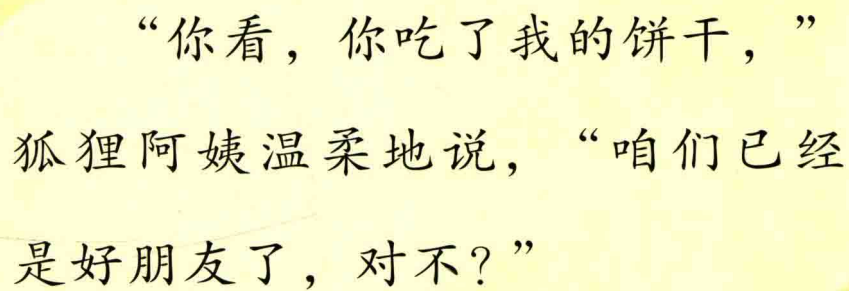 “你看，你吃了我的饼干，”
狐狸阿姨温柔地说，“咱们已经
是好朋友了，对不？”